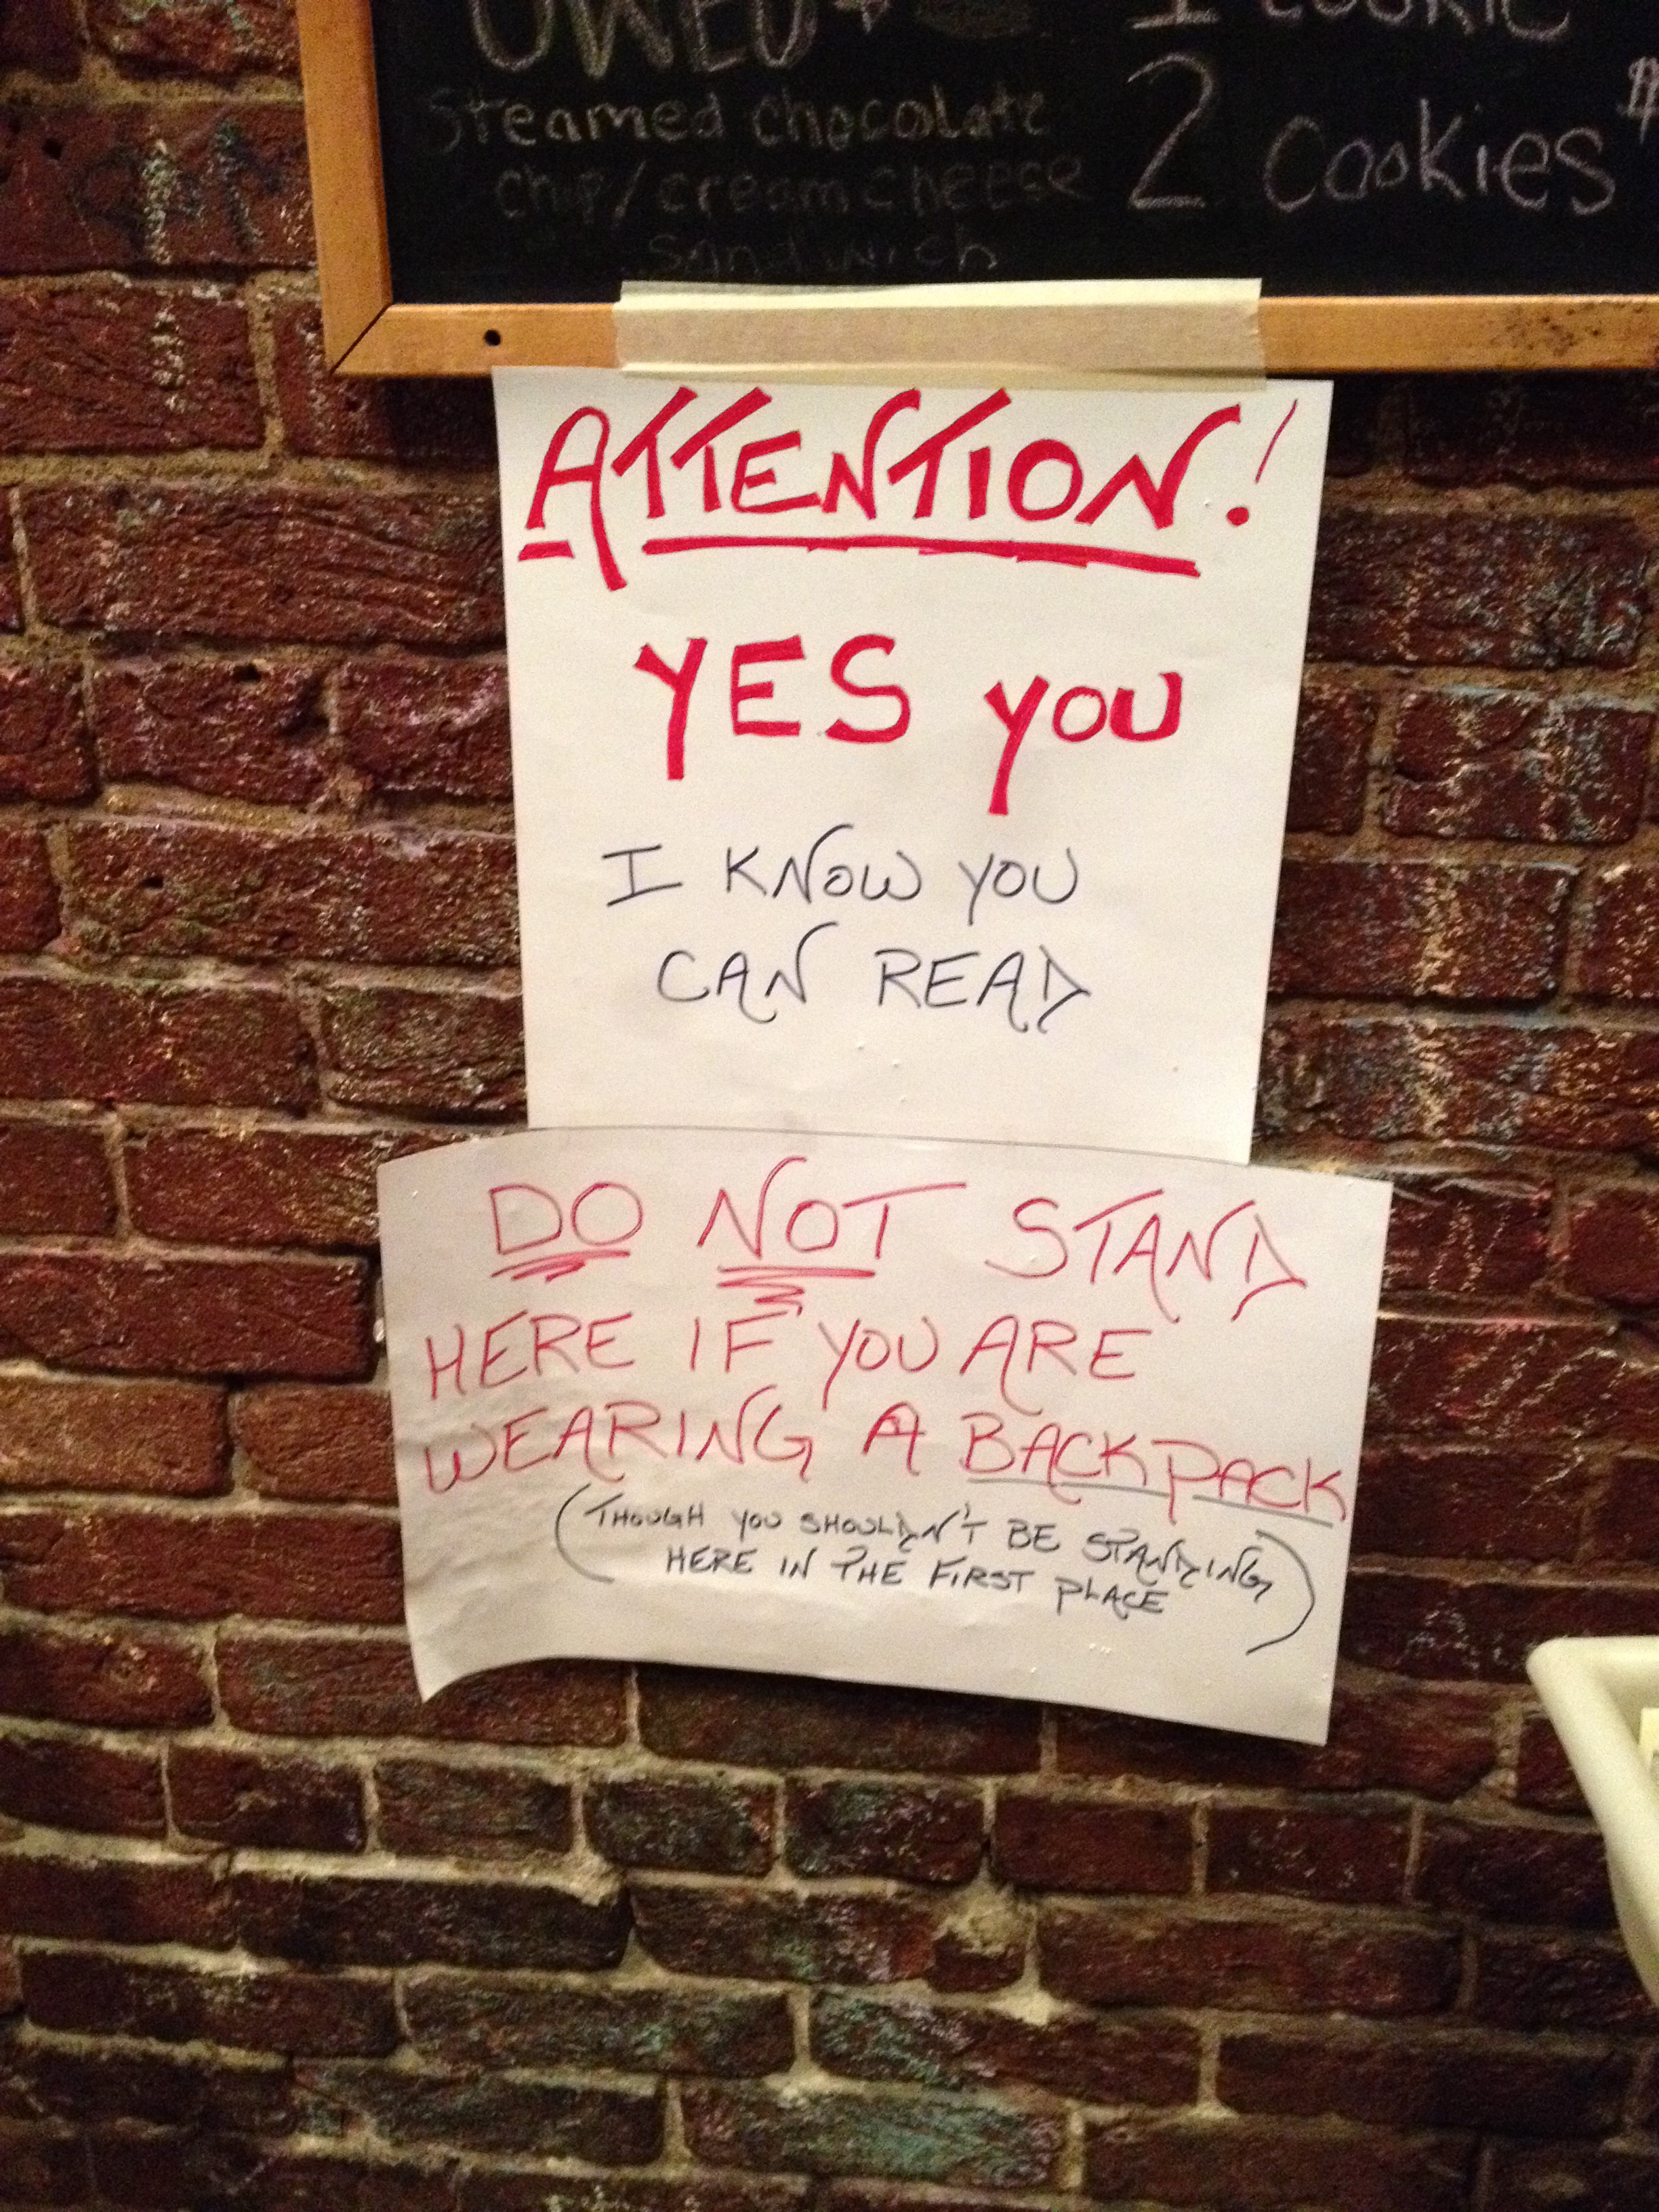 1 cookie
Steamed chocolate
2 cookies $
chip/creamcheese
sandwich
ATTENTION!
YES YOU
I KNOW YOU
CAN READ
DO NOT STAND
HERE IF YOU ARE
WEARING A BACKPACK
(THOUGH YOU SHOULDN'T BE STANDING
HERE IN THE FIRST PLACE)